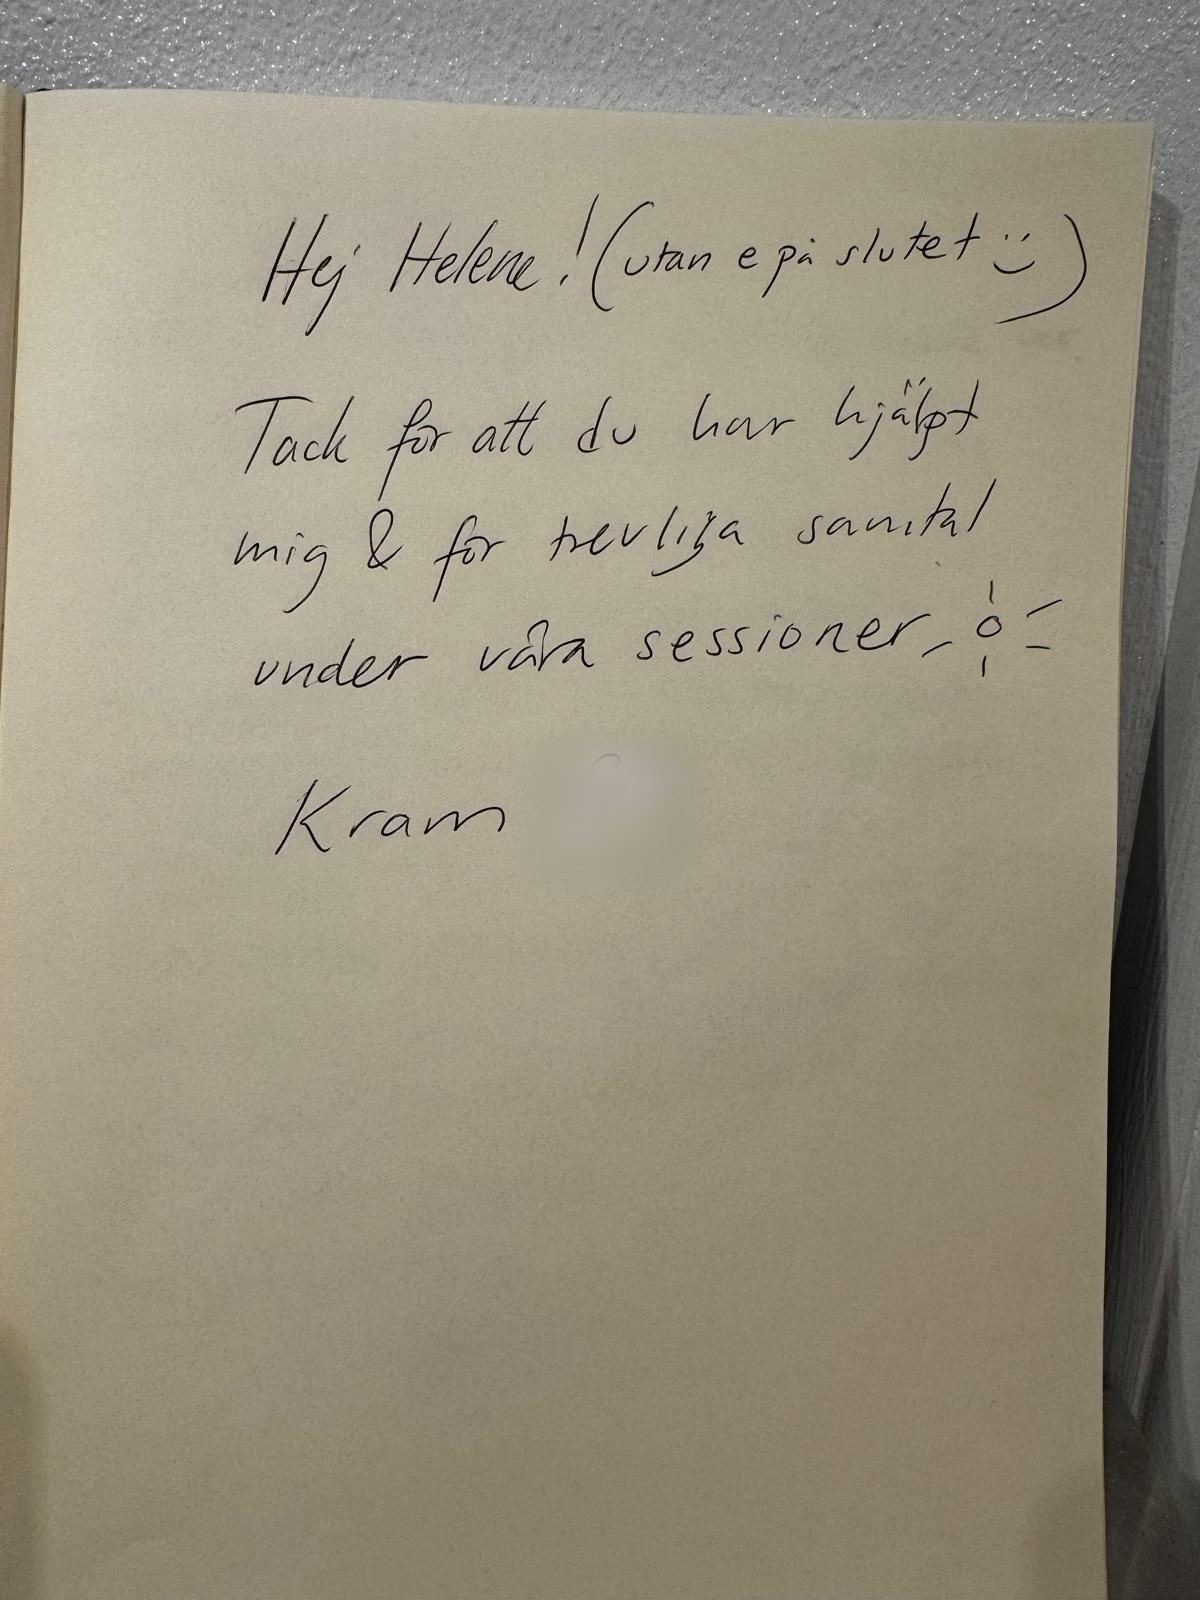 Hej Helene! (utan e på slutet :))
Tack för att du har hjälpt
mig & för trevliga samtal
under våra sessioner
Kram